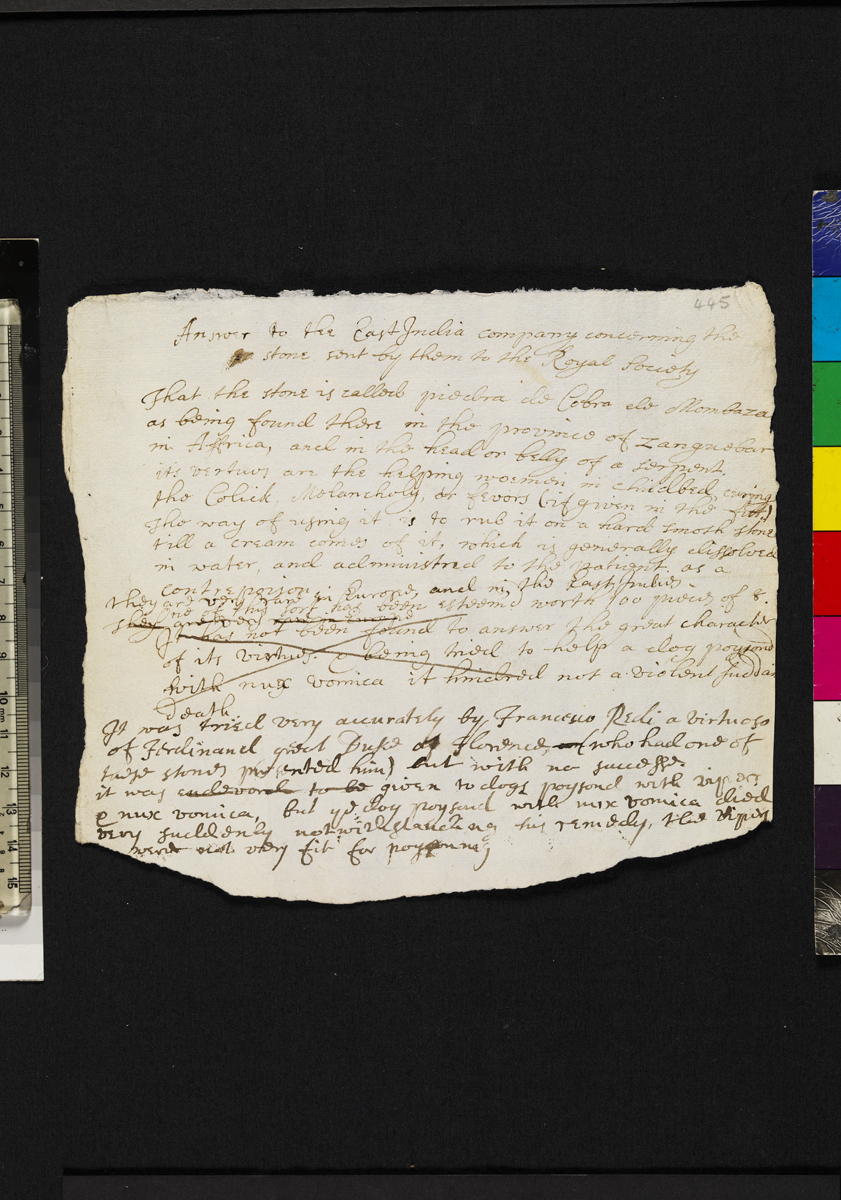 445
Answer to the East India company concerning the
stone sent by them to the Royal Society
That the stone is called piedra de Cobra de Mombaza
as being found there in the province of Zanguebar
in Affrica, and in the head or belly of a serpent.
its vertues are the helping woemen in childbed, curing
the Colick, Melancholy, or fevors (if given in the fitt)
The way of using it is to rub it on a hard smoth stone
till a cream comes of it, which is generally dissolved
in water, and administred to the patient as a
contrepoison
They are very rare in Europe, and in the East Indies
one of this sort has been esteemd worth 100 pieces of 8.
They are very rare in Europe
It has not been found to answer the great character
of its virtues. & being tried to help a dog poysond
with nux vomica it hindred not a violent suddain
Death
It was tried very accurately by Francesco Redi a virtuoso
of Ferdinand great Duke of Florence, (who had one of
these stones presented him) but with no successe
it was endevord to be given to dogs poysond with vipers
& nux vomica, but ye dog poysond with nux vomica died
very suddenly notwithstanding this remedy, the vipers
were not very fit for poysoning